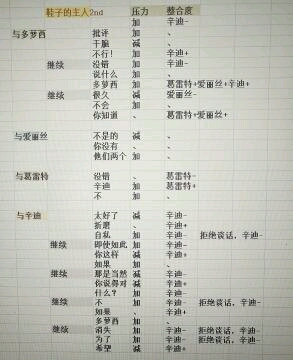 鞋子的主人2nd 压力 整合度
加 辛迪-
与多萝西 批评 加 、
干脆 减 、
不行！ 加 辛迪+
继续 没错 加 辛迪-
说什么 加 、
多萝西 加 葛雷特+爱丽丝+辛迪+
继续 很久 减 爱丽丝-
不会 加 、
你知道 、 葛雷特+爱丽丝+
与爱丽丝 不是的 减 、
你没有 、 、
他们两个 加 、
与葛雷特 没错 、 葛雷特-
辛迪 加 葛雷特+
不 加 、
与辛迪 太好了 减 辛迪-
折磨 、 辛迪+
自私 加 辛迪- 拒绝谈话，辛迪-
继续 即使如此 加 辛迪-
你这样 减 辛迪+
如果 加 、
继续 那是当然 减 辛迪-
你说得对 减 辛迪+
什么？ 加 辛迪-
继续 不 加 辛迪- 拒绝谈话，辛迪-
如果 、 辛迪+
多萝西 加 、
继续 消失 加 辛迪- 拒绝谈话，辛迪-
为了 加 辛迪- 拒绝谈话，辛迪-
希望 减 辛迪+